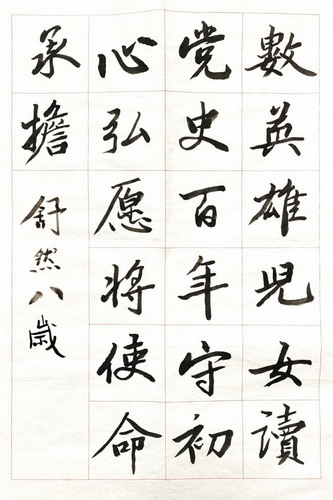 數英雄児女讀
党史百年守初
心弘愿將使命
承擔
舒然八歲